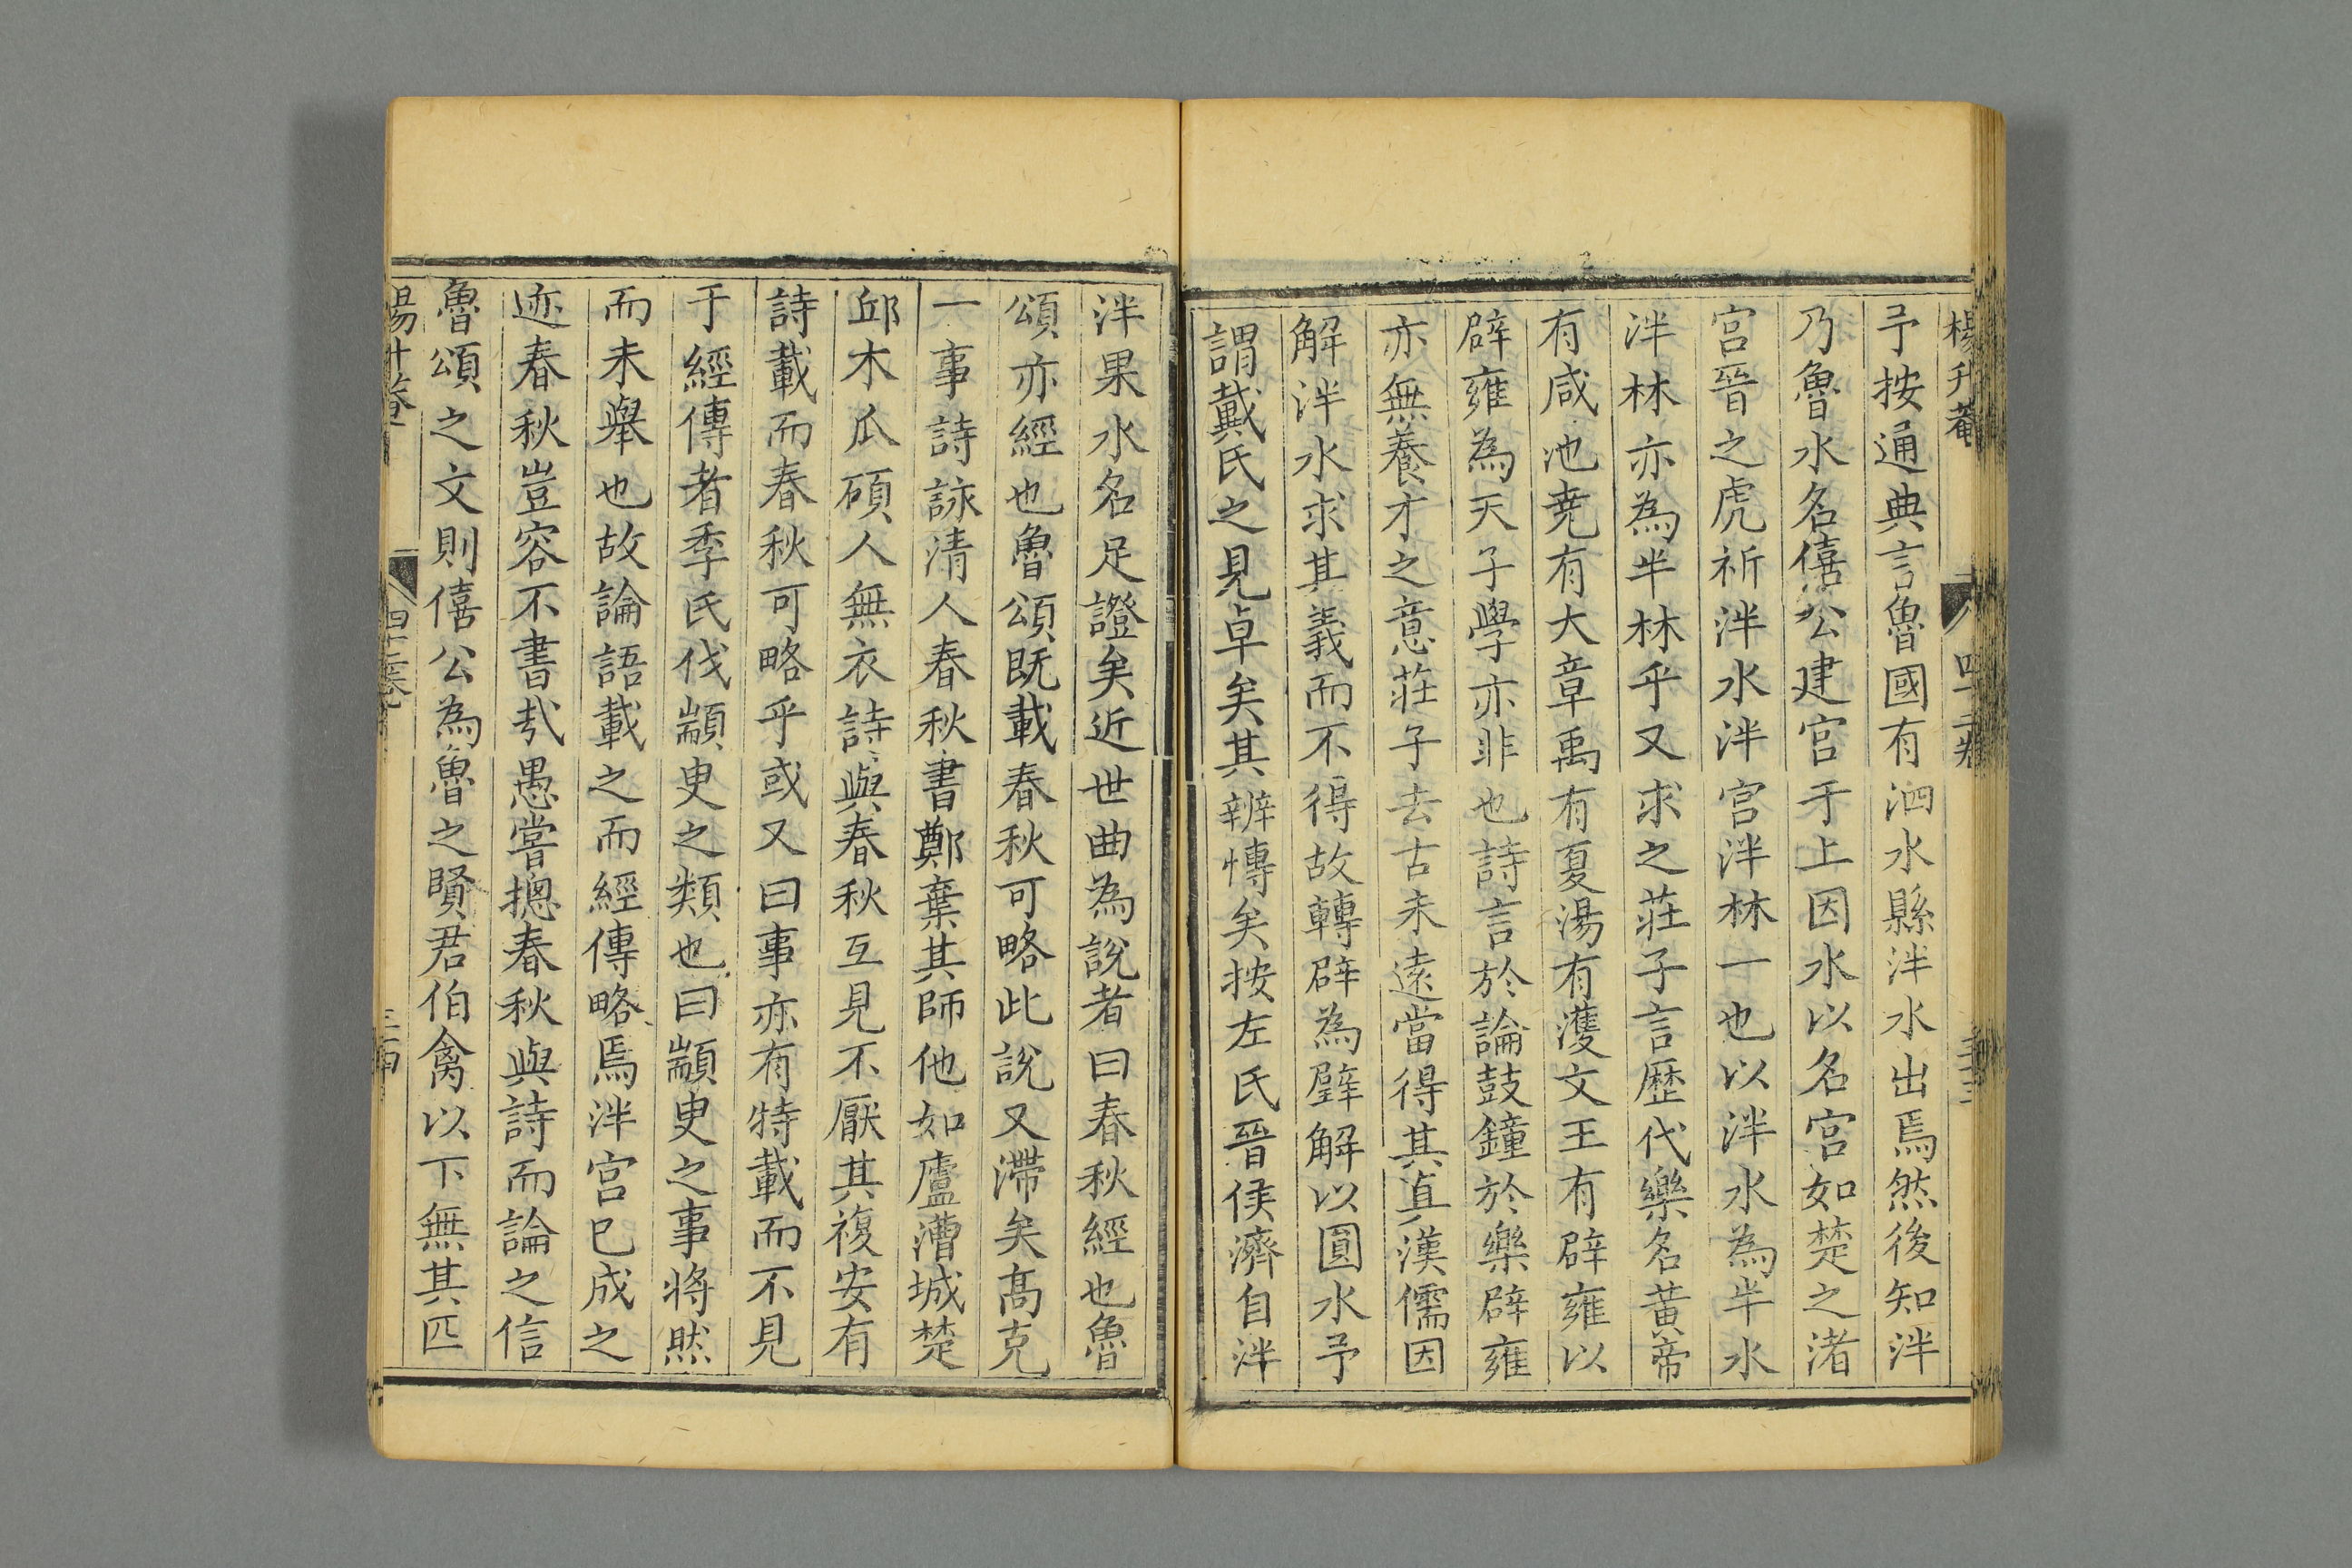 楊升菴 四十二卷
予按通典言魯國有泗水縣泮水出焉然後知泮
乃魯水名僖公建宮于上因水以名宮如楚之渚
宮晉之虒祈泮水泮宮泮林一也以泮水為半水
泮林亦為半林乎又求之莊子言歷代樂名黃帝
有咸池尭有大章禹有夏湯有濩文王有辟雍以
辟雍為天子學亦非也詩言於論鼓鐘於樂辟雍
亦無養才之意莊子去古未遠當得其真漢儒因
解泮水求其義而不得故轉辟為璧解以圓水予
謂戴氏之見卓矣其辨慱矣按左氏晉侯濟自泮
泮果水名足證矣近世曲為說者曰春秋經也魯
頌亦經也魯頌既載春秋可略此說又滯矣髙克
一事詩詠清人春秋書鄭棄其師他如廬漕城楚
邱木瓜碩人無衣詩與春秋互見不厭其複安有
詩載而春秋可略乎或又曰事亦有特載而不見
于經傳者季氏伐顓臾之類也曰顓臾之事將然
而未舉也故論語載之而經傳略焉泮宮已成之
迹春秋豈容不書㢤愚嘗摠春秋與詩而論之信
魯頌之文則僖公為魯之賢君伯禽以下無其匹